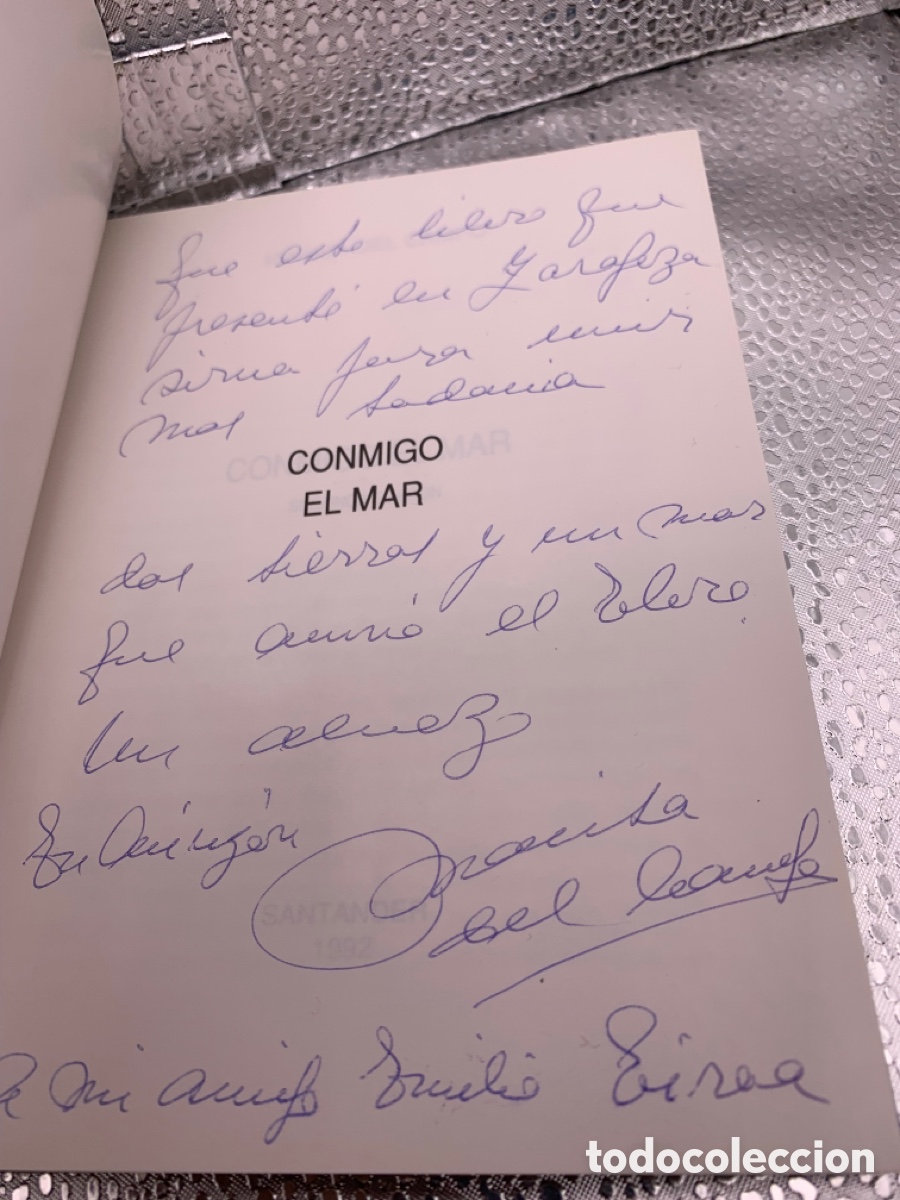 que este libro que
presenté en Zaragoza
sirva para unir
mas todavia
CONMIGO
EL MAR
dos tierras y un mar
que unió el Ebro
Un abrazo
En
del Campo
SANTANDER
1992
A mi amigo Emilio
todocoleccion